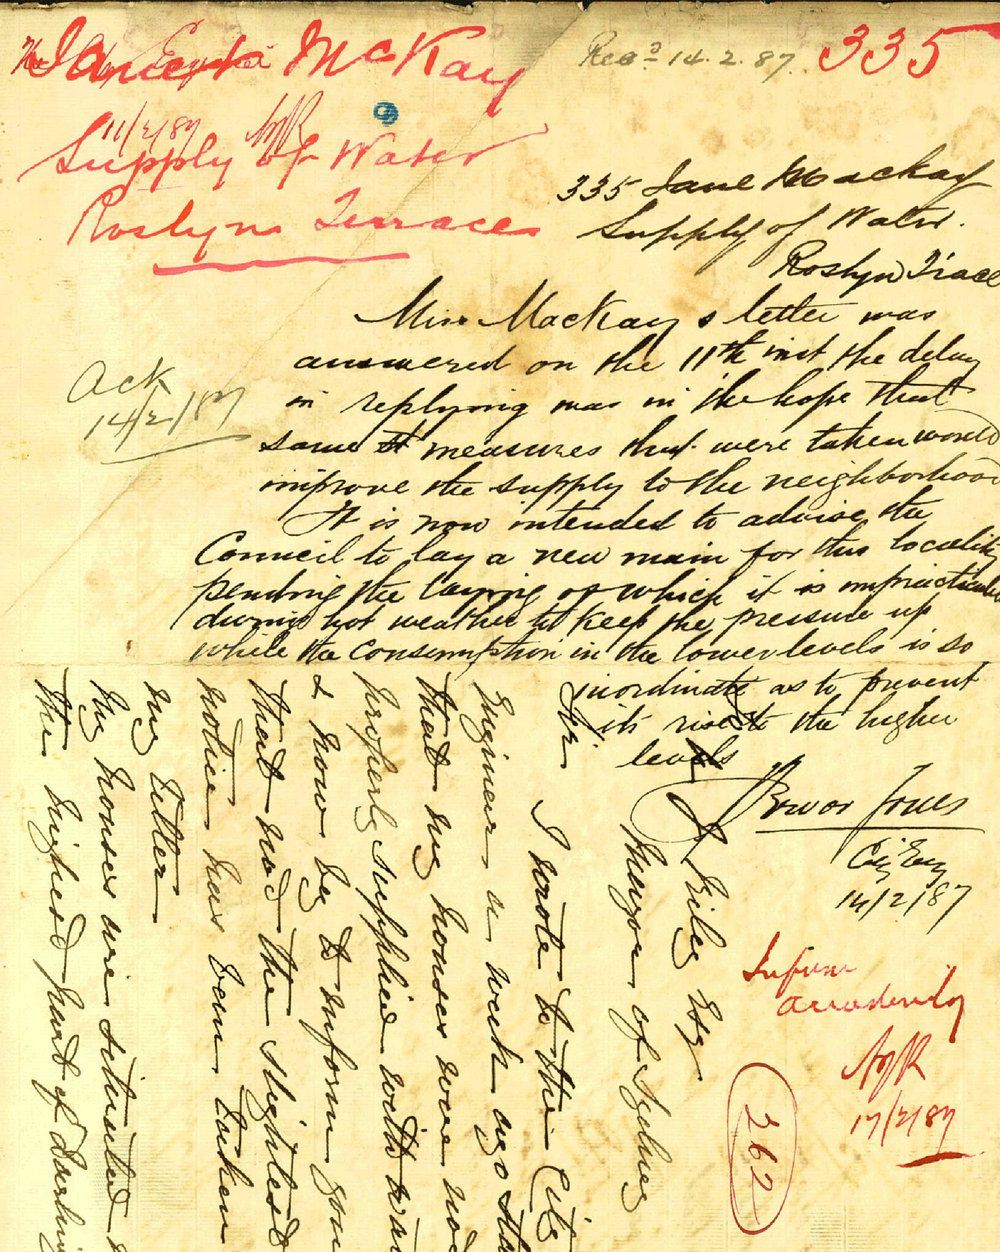 The City Engineer
Janet McKay
11/2/87 AJR
Supply of Water
Roslyn Terrace
Rec'd 14.2.87.
335
335 Jane Mackay
Supply of Water.
Roslyn T'race
Ack
14/2/87
Miss MacKay's letter was
answered on the 11th inst the delay
in replying was in the hope that
some measures that were taken would
improve the supply to the neighborhood
It is now intended to advise the
Council to lay a new main for this locality
pending the laying of which it is impracticable
during hot weather to keep the pressure up
while the consumption in the lower levels is so
inordinate as to prevent
its rise to the higher
levels
Bowor Jones
City Eng
14/2/87
Inform
accordingly
AJR
17/2/87
262
A J Riley Esq
Mayor of Sydney
Sir
I wrote to the City
Engineer a week ago
that my houses were not
properly supplied with
& now beg to inform you
that not the slightest
notice has been taken
my letter
My houses are situated
the highest part of